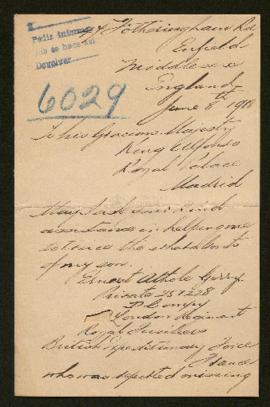 94 Fotheringham Rd
Enfield
Middlesex
England
June 8th 1918
6029
To His Gracious Majesty
King Alfonso
Royal Palace
Madrid
May I ask your kind
assistance in helping me
to trace the whereabouts
of my son.
Ernest Athole
Private
D Compy
London Regiment
Royal Fusiliers
British Expeditionary Force
France
who was reported missing